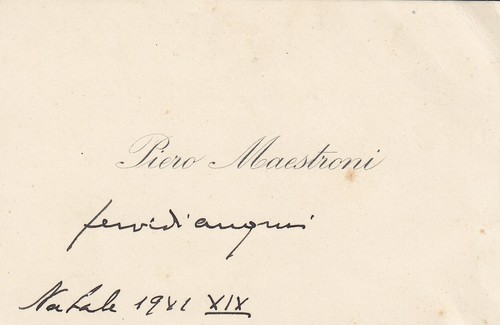 Piero Maestroni
fervidi auguri
Natale 1941 XIX